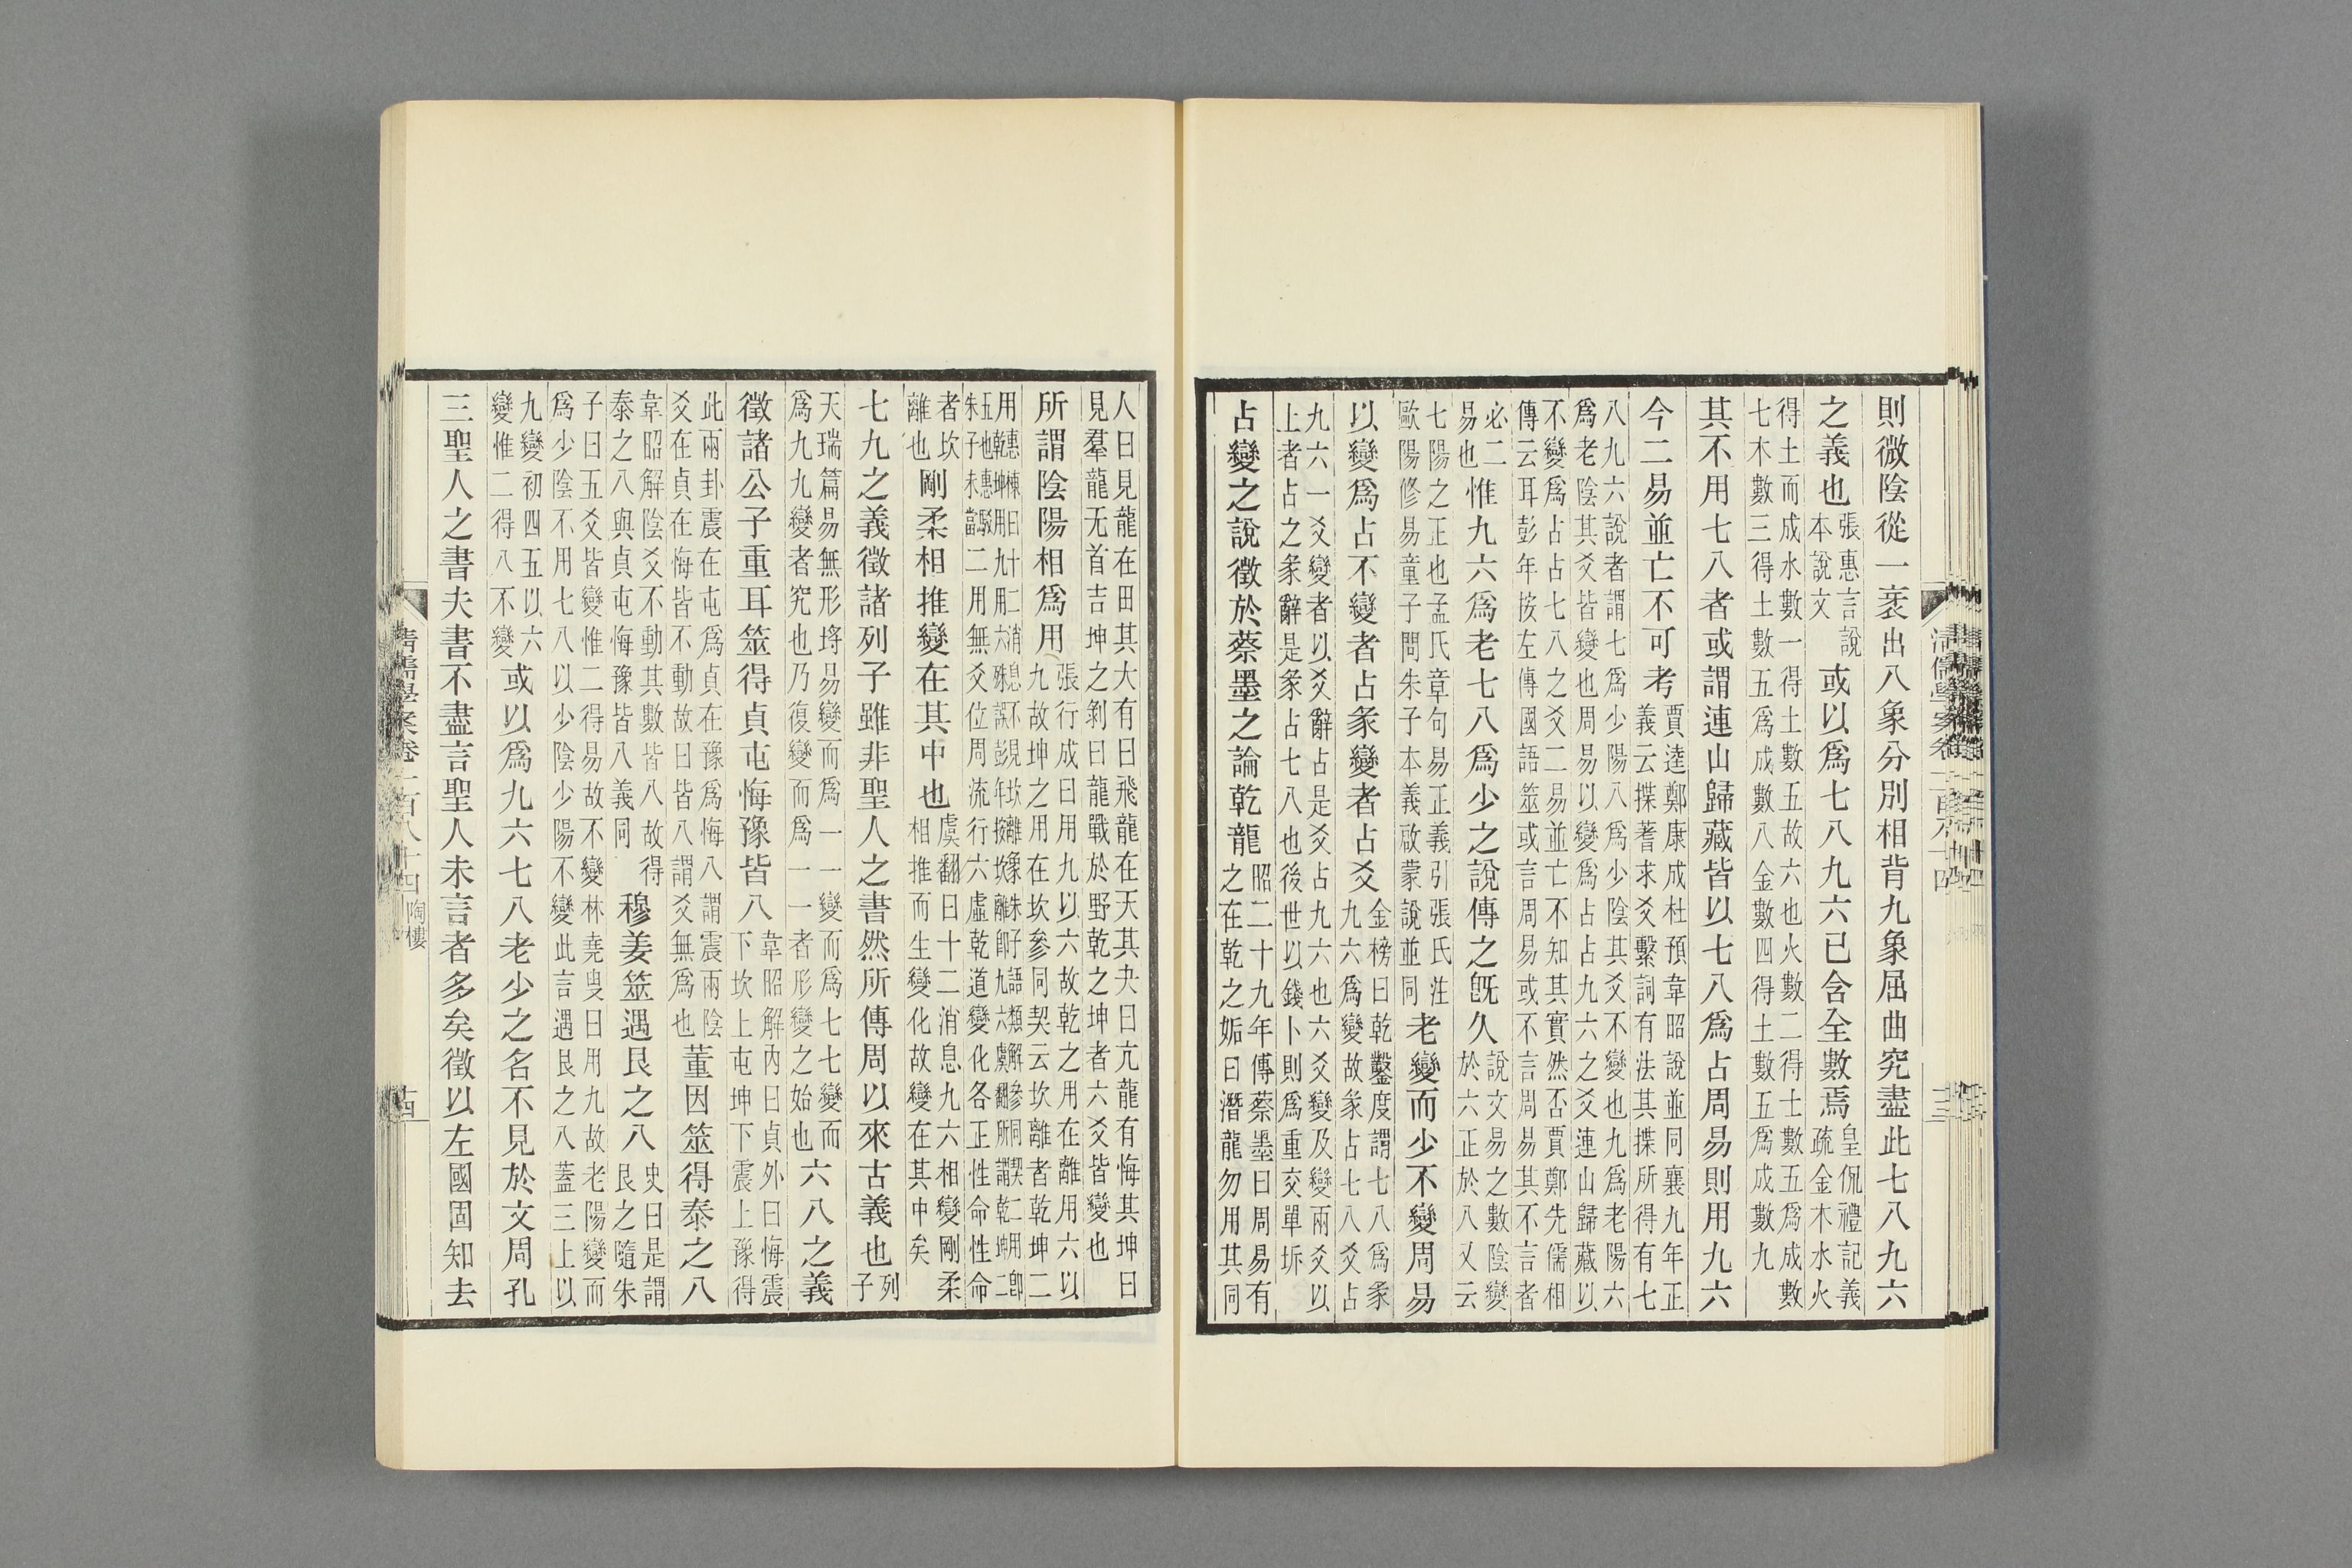 則微陰從一衺出八象分別相背九象屈曲究盡此七八九六
之義也張惠言說
本說文或以爲七八九六已含全數焉皇侃禮記義
疏金木水火
得土而成水數一得土數五故六也火數二得土數五爲成數
七木數三得土數五爲成數八金數四得土數五爲成數九
其不用七八者或謂連山歸藏皆以七八爲占周易則用九六
今二易並亡不可考賈逵鄭康成杜預韋昭說並同襄九年正
義云揲蓍求爻繫詞有法其揲所得有七
八九六說者謂七爲少陽八爲少陰其爻不變也九爲老陽六
爲老陰其爻皆變也周易以變爲占占九六之爻連山歸藏以
不變爲占占七八之爻二易並亡不知其實然否賈鄭先儒相
傳云耳彭年按左傳國語筮或言周易或不言周易其不言者
必二
易也惟九六爲老七八爲少之說傳之旣久說文易之數陰變
於六正於八又云
七陽之正也孟氏章句易正義引張氏注
歐陽修易童子問朱子本義啟蒙說並同老變而少不變周易
以變爲占不變者占彖變者占爻金榜曰乾鑿度謂七八爲彖
九六爲變故彖占七八爻占
九六一爻變者以爻辭占是爻占九六也六爻變及變兩爻以
上者占之彖辭是彖占七八也後世以錢卜則爲重交單坼
占變之說徵於蔡墨之論乾龍昭二十九年傳蔡墨曰周易有
之在乾之姤曰潛龍勿用其同
清儒學案卷一百八十四
十三
人曰見龍在田其大有曰飛龍在天其夬曰亢龍有悔其坤曰
見羣龍无首吉坤之剝曰龍戰於野乾之坤者六爻皆變也
所謂陰陽相爲用張行成曰用九以六故乾之用在離用六以
九故坤之用在坎參同契云坎離者乾坤二
用惠棟曰十二消息不見坎離象朱子語類解參同契二用卽
乾坤用九用六殊誤彭年按坎離卽九六虞翻所謂乾坤二
五也惠駁
朱子未當二用無爻位周流行六虛乾道變化各正性命性命
者坎
離也剛柔相推變在其中也虞翻曰十二消息九六相變剛柔
相推而生變化故變在其中矣
七九之義徵諸列子雖非聖人之書然所傳周以來古義也列
子
天瑞篇易無形埒易變而爲一一變而爲七七變而
爲九九變者究也乃復變而爲一一者形變之始也六八之義
徵諸公子重耳筮得貞屯悔豫皆八韋昭解內曰貞外曰悔震
下坎上屯坤下震上豫得
此兩卦震在屯爲貞在豫爲悔八謂震兩陰
爻在貞在悔皆不動故曰皆八謂爻無爲也董因筮得泰之八
韋昭解陰爻不動其數皆八故得
泰之八與貞屯悔豫皆八義同穆姜筮遇艮之八史曰是謂
艮之隨朱
子曰五爻皆變惟二得易故不變林堯叟曰用九故老陽變而
爲少陰不用七八以少陰少陽不變此言遇艮之八蓋三上以
九變初四五以六
變惟二得八不變或以爲九六七八老少之名不見於文周孔
三聖人之書夫書不盡言聖人未言者多矣徵以左國固知去
清儒學案卷一百八十四 陶樓
十四